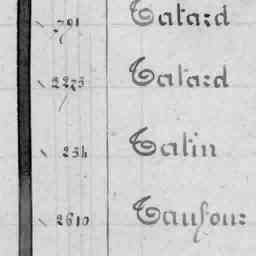 791 Tatard
2273 Tatard
254 Tatin
2610 Taufour